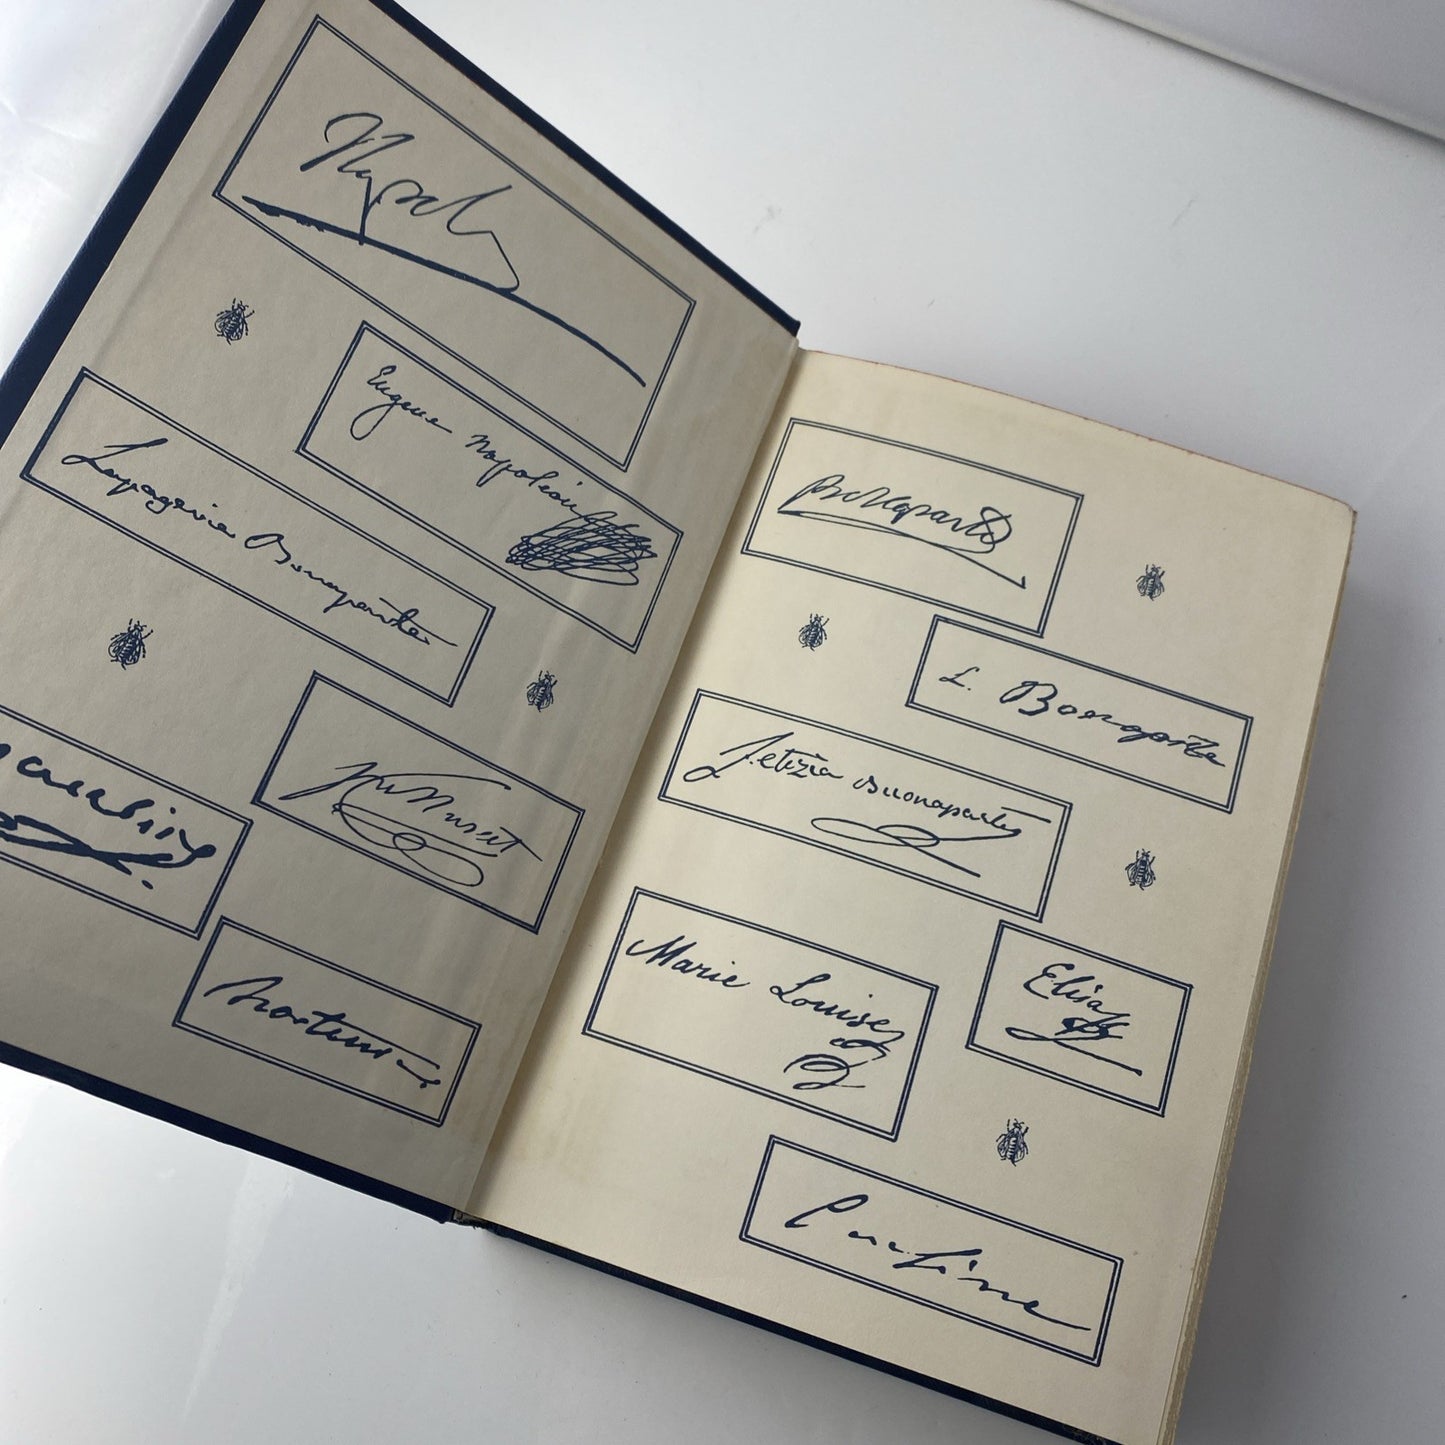 Napol
Eugene Napoléon
Lapagerie Bonaparte
Hortense
Bonaparte
L. Bonaparte
Letizia Buonaparte
Marie Louise
Elisa
Pauline